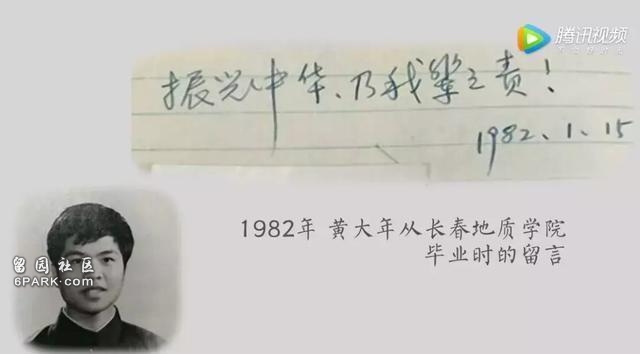 腾讯视频
振兴中华、乃我辈之责！
1982.1.15
1982年 黄大年从长春地质学院
毕业时的留言
留园社区
6PARK.com